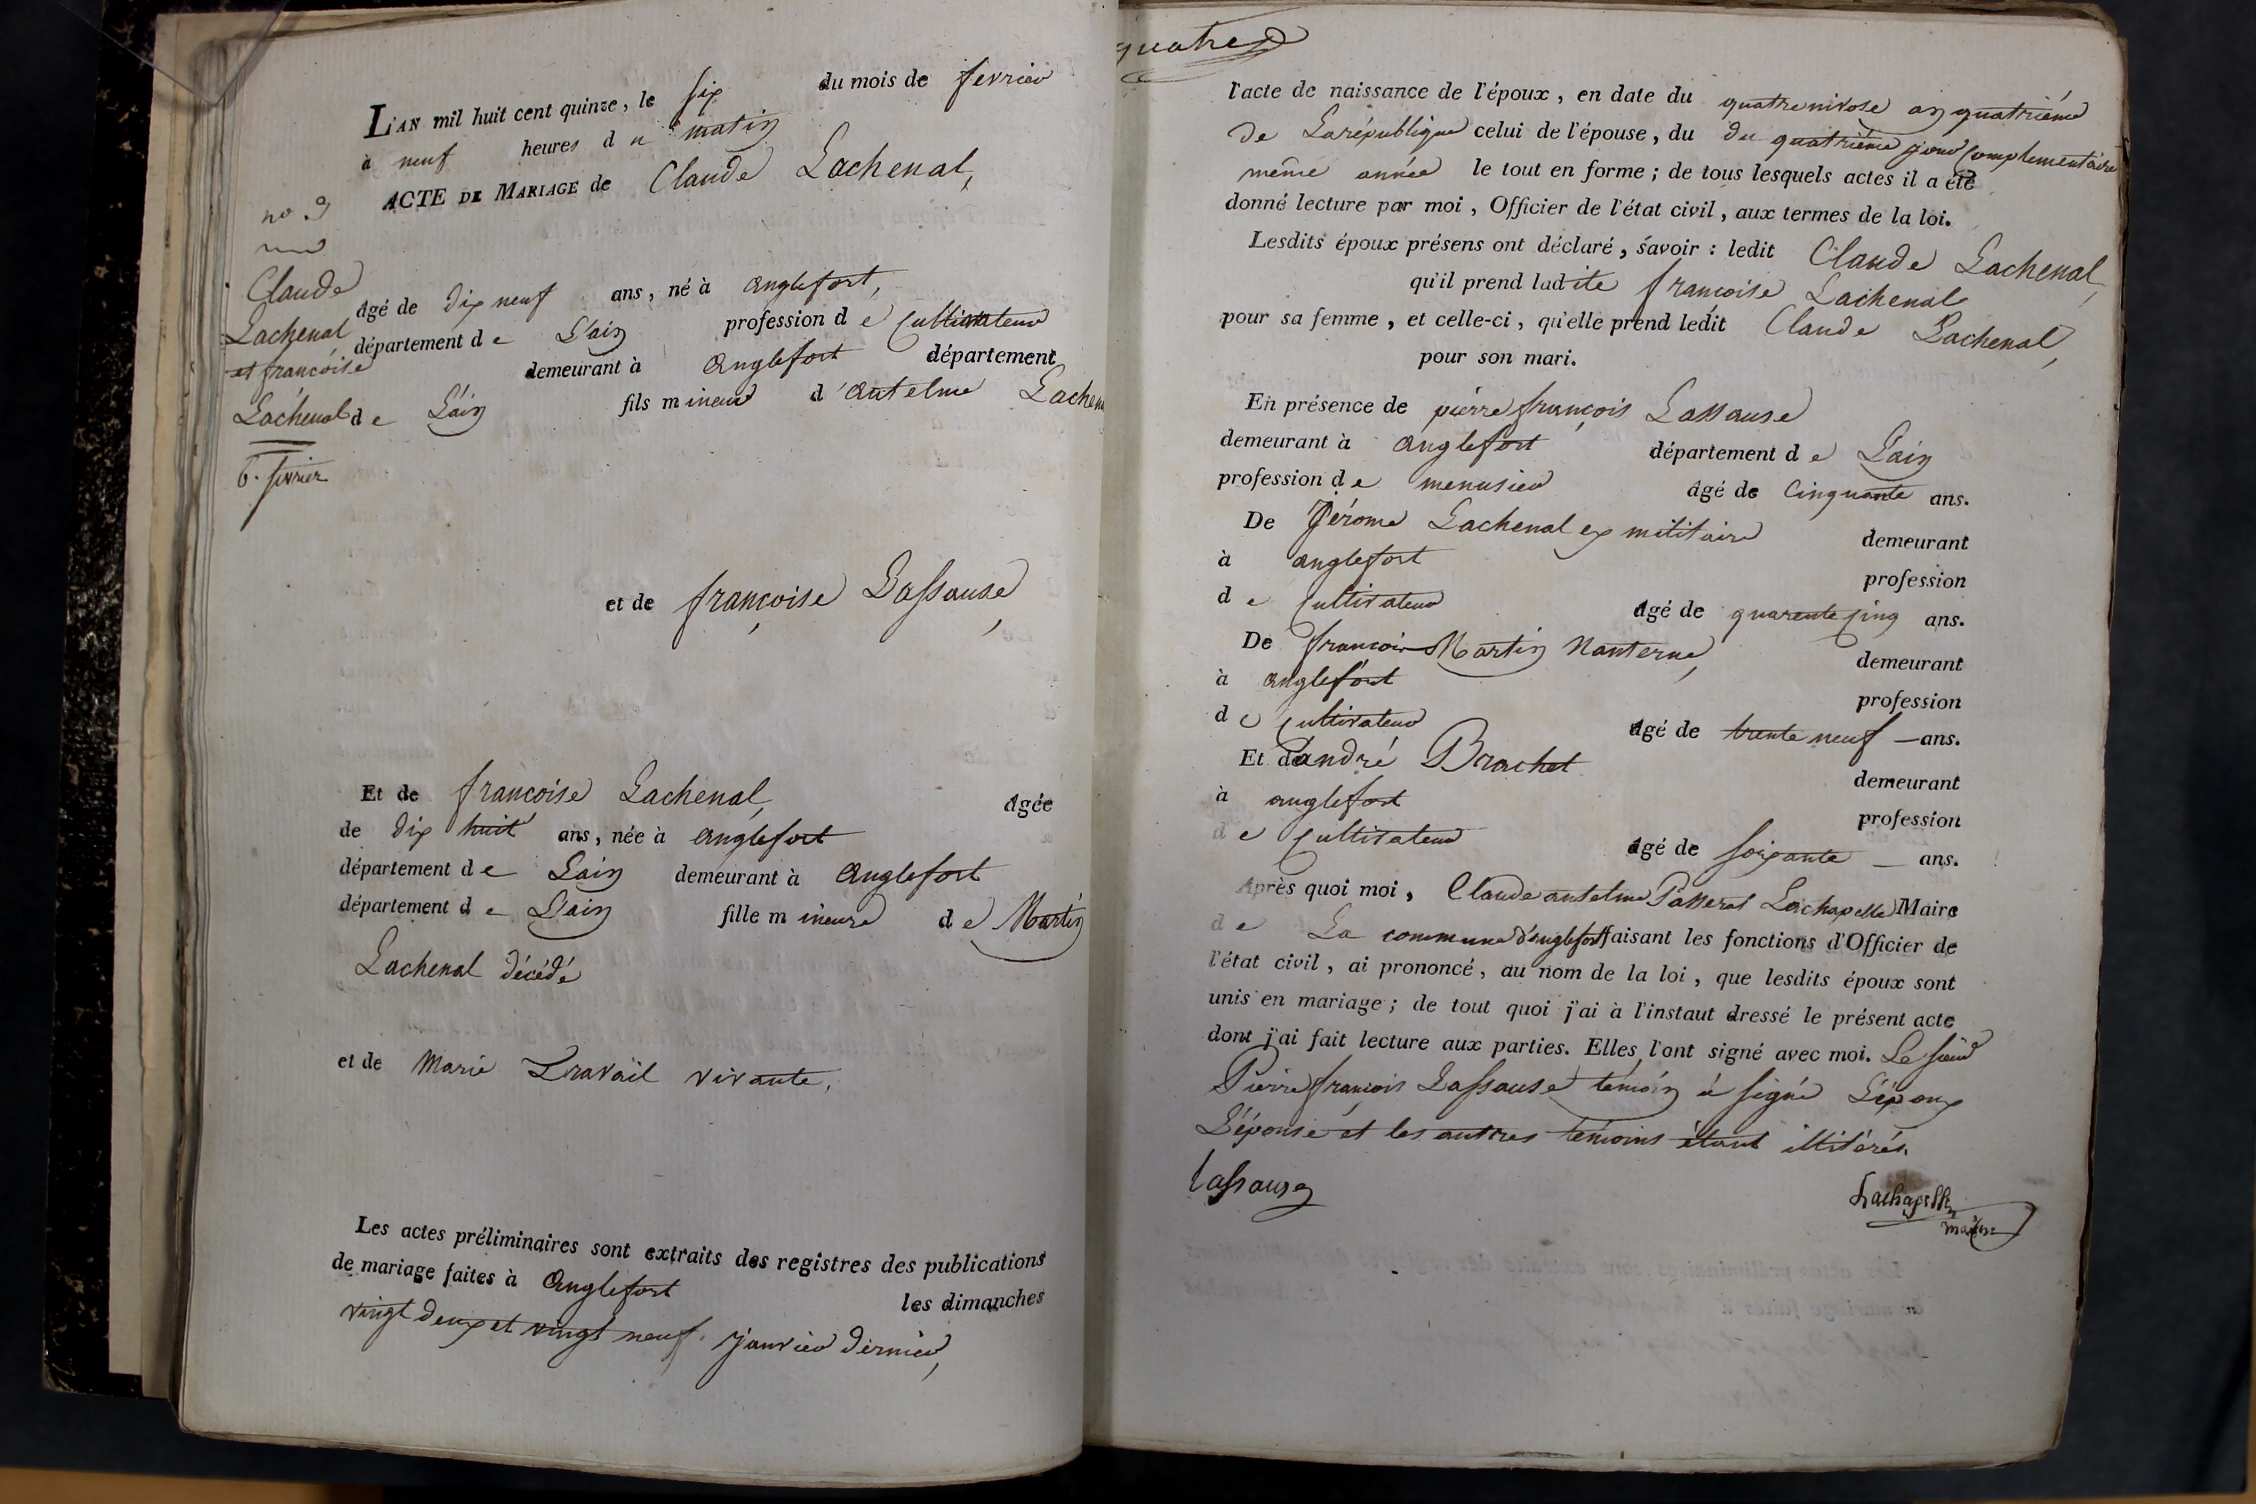 L'AN mil huit cent quinze, le six du mois de fevrier
à neuf heures du matin
ACTE DE MARIAGE de Claude Lachenal,
no. 9
Claude
Lachenal
et françoise
Lachenal
6. fevrier
âgé de dix neuf ans, né à anglefort,
département de L'ain profession de Cultivateur
demeurant à anglefort département
de L'ain fils mineur d'antelme Lachenal
et de françoise Lassause,
Et de francoise Lachenal, âgée
de dix huit ans, née à anglefort
département de Lain demeurant à anglefort
département de L'ain fille mineure de Martin
Lachenal décédé
et de Marie Travail vivante,
Les actes préliminaires sont extraits des registres des publications
de mariage faites à anglefort les dimanches
vingt deux et vingt neuf janvier dernier,
quatre
l'acte de naissance de l'époux, en date du quatre nivose an quatriéme
de La république celui de l'épouse, du du quatriéme jour Complementaire
même année le tout en forme; de tous lesquels actes il a été
donné lecture par moi, Officier de l'état civil, aux termes de la loi.
Lesdits époux présens ont déclaré, savoir: ledit Claude Lachenal,
qu'il prend ladite françoise Lachenal
pour sa femme, et celle-ci, qu'elle prend ledit Claude Lachenal,
pour son mari.
En présence de pierre françois Lassause
demeurant à anglefort département de Lain
profession de menusier âgé de Cinquante ans.
De Jérome Lachenal ex militaire demeurant
à anglefort profession
de Cultivateur âgé de quarente cinq ans.
De francois Martin Nanterne, demeurant
à anglefort profession
de Cultivateur âgé de trente neuf — ans.
Et d'andré Brachet demeurant
à anglefort profession
de Cultivateur âgé de soixante — ans.
Après quoi moi, Claude antelme Passerat Lachapelle Maire
de La commune d'anglefort faisant les fonctions d'Officier de
l'état civil, ai prononcé, au nom de la loi, que lesdits époux sont
unis en mariage; de tout quoi j'ai à l'instaut dressé le présent acte
dont j'ai fait lecture aux parties. Elles l'ont signé avec moi. Le sieur
Pierre françois Lassause témoin a signé L'époux
L'épouse et les autres témoins étant illitérés.
Lassause
Lachapelle
maire